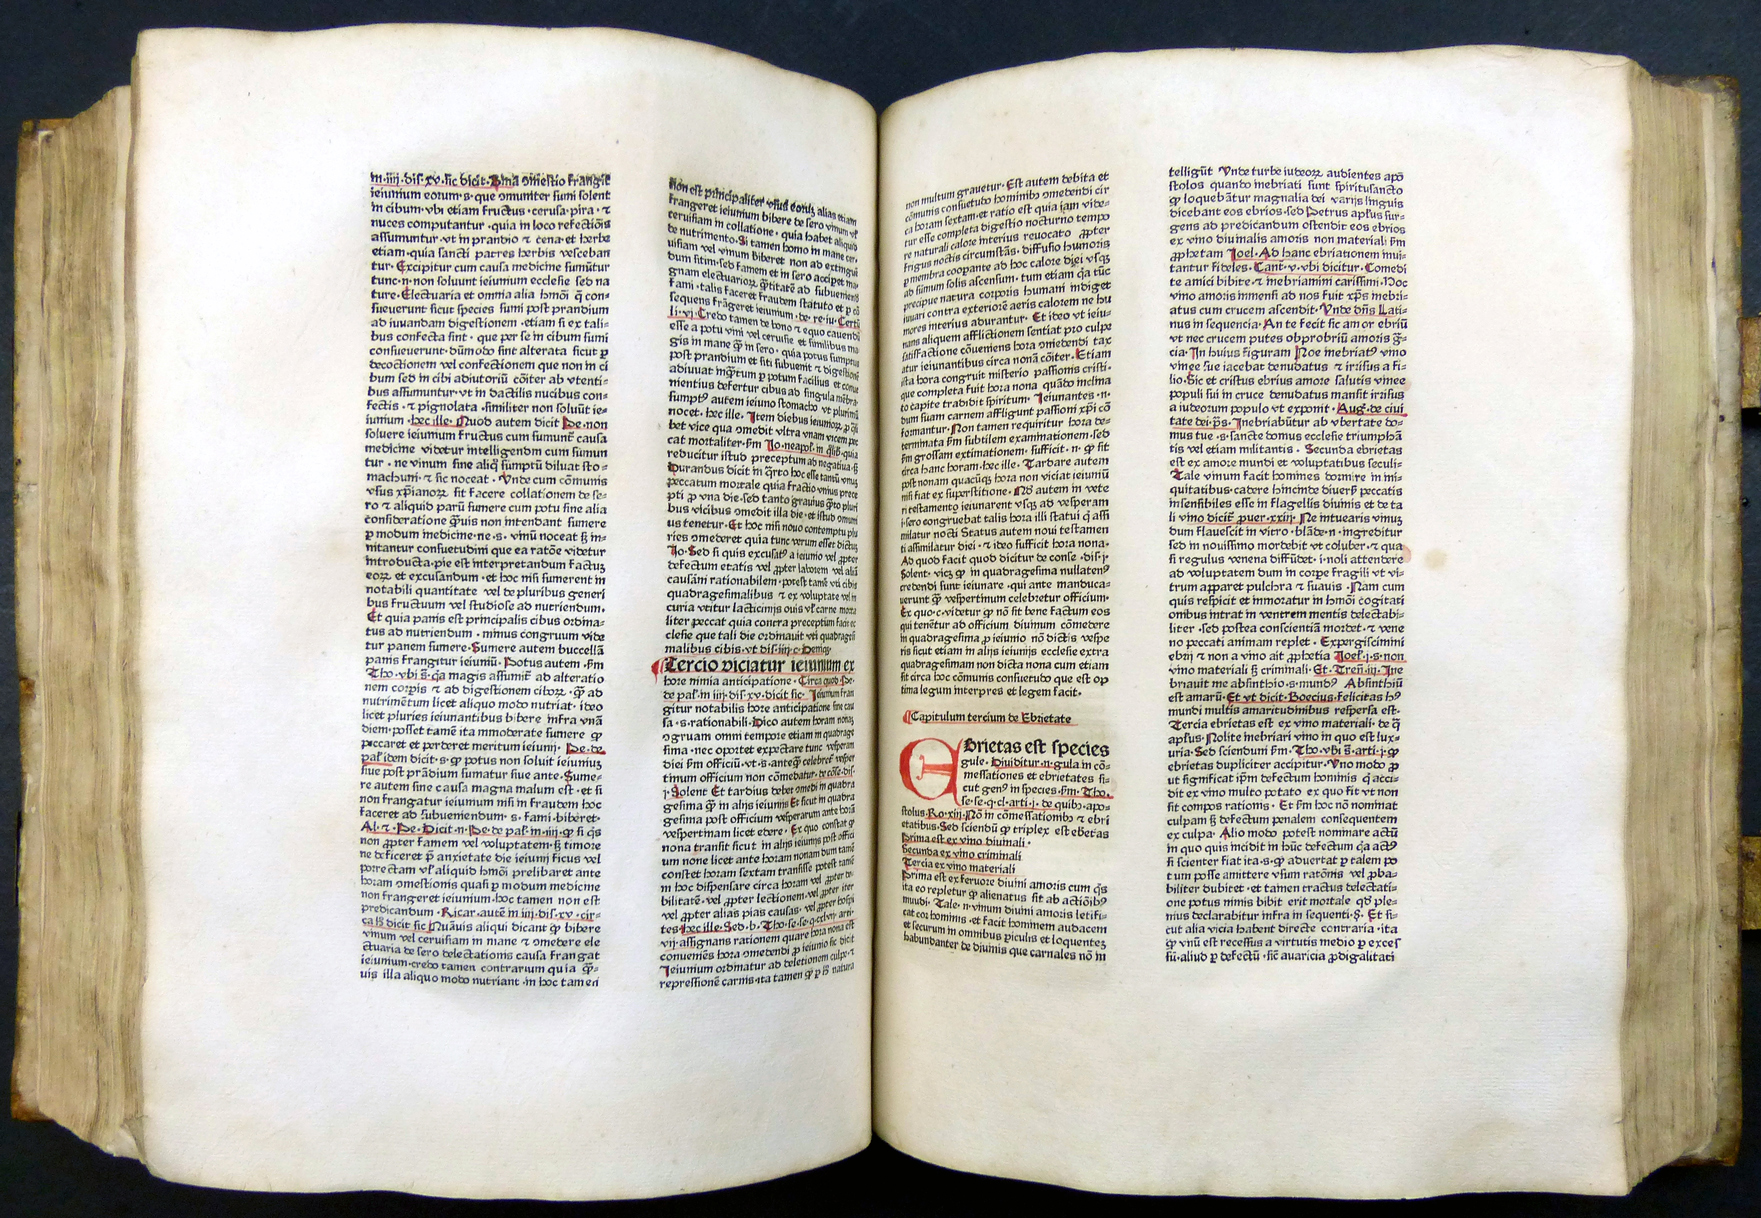 in·iiij·dis·xv·sic dicit·Una ꝯmestio frangit
ieiunium eorum·s·que ꝯmuniter sumi solent
in cibum·vbi etiam fructus·cerusa·pira·⁊
nuces computantur·quia in loco refectiõis
assumuntur·vt in prandio ⁊ cena·et herbe
etiam·quia sancti patres herbis vesceban
tur·Excipitur cum causa medicine sumũtur
tunc·n·non soluunt ieiunium ecclesie sed na
ture·Electuaria et omnia alia hmõi q̃ con=
sueuerunt sicut species sumi post prandium
ad iuuandam digestionem·etiam si ex tali=
bus confecta sint·que per se in cibum sumi
consueuerunt·dũmodo sint alterata sicut ꝑ
decoctionem vel confectionem que non in ci
bum sed in cibi adiutoriũ cõiter ab vtenti=
bus assumuntur·vt in dactilis nucibus con=
fectis·⁊ pignolata·similiter non soluũt ie=
iunium·hec ille·Quod autem dicit Pe·non
soluere ieiunium fructus cum sumunt causa
medicine videtur intelligendm cum sumun
tur·ne vinum sine aliq̃ sumptũ diluat sto=
machum·⁊ sic noceat·Unde cum cõmunis
vsus xp̃ianoꝝ sit facere collationem de se=
ro ⁊ aliquid parũ sumere cum potu sine alia
consideratione q̃uis non intendant sumere
ꝑ modum medicine·ne·s·vinũ noceat ꝫ in=
nitantur consuetudini que ea ratõe videtur
introducta·pie est interpretandum factuꝫ
eoꝝ et excusandum·et hoc nisi sumerent in
notabili quantitate vel de pluribus generi
bus fructuum vel studiose ad nutriendum.
Et quia panis est principalis cibus ordina=
tus ad nutriendum·minus congruum vide
tur panem sumere·Sumere autem buccellã
panis frangitur ieiuniũ·Potus autem·s̃m
Tho·vbi s̃·q̃a magis assumit̃ ad alteratio
nem corp̃is ⁊ ad digestionem ciboꝝ·q̃ ad
nutrimentum licet aliquo modo nutriat·ideo
licet pluries ieiunantibus bibere infra vnã
diem·posset tamẽ ita immoderate sumere ꝙ
piccaret et perderet meritum ieiunij·Pe·de
pal·idem dicit·s·ꝙ potus non soluit ieiuniuꝫ
siue post prãdium sumatur siue ante·Sume=
re autem sine causa magna malum est·et si
non frangatur ieiunium nisi in fraudem hoc
faceret ad subueniendum·s·fami·biberet·
Al·⁊·Pe·Dicit·n·Pe·de pal·in·iiij·ꝙ si q̃s
non ꝓpter famem vel voluptatem·ꝫ timore
ne deficeret p̃ anxietate die ieiunij ficus vel
porrectam vl̃ aliquid hmõi prelibaret ante
horam ꝯmestionis quasi ꝑ modum medicine
non frangeret ieiunium·hoc tamen non est
predicandum·Ricar·autẽ in iiij·dis·xv·cir=
ca lr̃ã dicit sic Quãuis aliqui dicant ꝙ bibere
vinum vel ceruisiam in mane ⁊ ꝯmedere ele
ctuaria de sero delectationis causa frangat
ieiunium·credo tamen contrarium quia q̃=
uis illa aliquo modo nutriant·in hoc tamen
frangeret ieiunium bibere de sero vinum vl̃
ceruisiam in collatione·quia habet aliquid
de nutrimento·Si tamen homo in mane cer=
uisiam vel vinum biberet non ad extingui
dum sitim·sed famem et in sero acciperet ma
gnam electuarioꝝ q̃titatẽ ad subueniend̃
fami·talis faceret fraudem statuto et ꝑ cõ
sequens frãgeret ieiunium·de·re·iu·Certũ
li·vj·Credo tamen de bono ⁊ equo cauendũ
esse a potu vini vel ceruisie et similibus ma
gis in mane q̃ in sero·quia potus sumptus
post prandium et siti subuenit ⁊ digestiõi
adiuuat inq̃tum ꝑ potum facilius et conue
nientius defertur cibus ad singula mẽbra·
sumptꝰ autem ieiuno stomacho vt plurimũ
nocet·hec ille·Item diebus ieiunioꝝ ꝑ q̃ li
bet vice qua ꝯmedit vltra vnam vicem pec
cat mortaliter·s̃m Jo·neapol·in q̃lib·quia
reducitur istud preceptum ad negatiua·ꝫ
Durandus dicit in q̃rto hoc esse tantũ vnuꝫ
peccatum mortale quia fractio vnius prece
pti ꝓ vna die·sed tanto grauius q̃to pluri
bus vicibus ꝯmedit illa die·et istud ꝯmuni
us tenetur·Et hoc nisi nouo contemptu plu
ries ꝯmederet quia tunc verum esset dictuꝫ
Jo·Sed si quis excusatꝰ a ieiunio vel ꝓpter
defectum etatis vel ꝓpter laborem vel aliã
causam rationabilem·potest tamẽ vti cibis
quadragesimalibus ⁊ ex voluptate vel in
curia vtitur lacticinijs ouis vl̃ carne morta
liter peccat quia contra preceptum facit ec
clesie que tali die ordinauit vti quadragesi
malibus cibis·vt dis·iiij·c·Deniqꝫ·
¶Tercio viciatur ieiunium ex
hore nimia anticipatione·Circa quod Pe·
de pal·in iiij·dis·xv·dicit sic·Ieiunium fran
gitur notabilis hore anticipatione sine cau
sa·s·rationabili·Dico autem horam nonaꝫ
ꝯgruam omni tempore etiam in quadrage
sima·nec oportet expectare tunc vesperam
diei s̃m officiũ·vt·s·anteq̃ celebret̃ vesper
timum officium non cõmedatur·de cõse·dis·
j·Solent Et tardius debet ꝯmedi in quadra
gesima q̃ in alijs ieiunijs Et sicut in quadra
gesima post officium vesperarum ante horã
vespertinam licet edere·Ex quo constat ꝙ
nona transit sicut in alijs ieiunijs post offici
um none licet ante horam nonam dum tamẽ
constet horam sextam transisse potest tamẽ
in hoc dispensare circa horam vel ꝓpter de=
bilitatẽ·vel ꝓpter lectionem·vel ꝓpter iter
vel ꝓpter alias pias causas·vel ꝓpter hospi
tes·hec ille·Sed·b·Tho·se·se·q·cxlvij·arti·
vij·assignans rationem quare hora nona est
conueniẽs hora ꝯmedendi ꝓ ieiunio sic dicit
Ieiunium ordinatur ad deletionem culpe·⁊
repressionẽ carnis·ita tamen ꝙ ꝑ ħ natura
non multum grauetur·Est autem debita et
cõmunis consuetudo hominibꝰ ꝯmedendi cir
ca horam sextam·et ratio est quia iam vide=
tur esse completa digestio nocturno tempo
re naturali calore interius reuocato ꝓpter
frigus noctis circumstãs·diffusio humoris
ꝑ membra coopante ad hoc calore diei vsqꝫ
ad summum solis ascensum·tum etiam q̃a tũc
precipue natura corporis humani indiget
iuuari contra exteriorẽ aeris calorem ne hu
mores interius adurantur·Et ideo vt ieiu=
nans aliquem afflictionem sentiat pro culpe
satisfactione cõueniens hora ꝯmedendi tax
atur ieiunantibus circa nonã cõiter·Etiam
ista hora congruit misterio passionis cristi·
que completa fuit hora nona quãdo inclina
to capite tradidit spiritum·Ieiunantes·n·
dum suam carnem affligunt passioni xp̃i cõ
formantur·Non tamen requiritur hora de=
terminata s̃m subtilem examinationem·sed
s̃m grossam extimationem·sufficit·n·ꝙ sit
circa hanc horam·hec ille·Tardare autem
post nonam quacũqꝫ hora non viciat ieiuniũ
nisi fiat ex superstitione·Nõ autem in vete
ri testamento ieiunarent vsqꝫ ad vesperam
j·sero congruebat talis hora illi statui q̃ assi
milatur nocti Status autem noui testamen
ti assimilatur diei·⁊ ideo sufficit hora nona·
Ad quod facit quod dicitur de conse·dis·j·
Solent·vicꝫ ꝙ in quadragesima nullatenꝰ
credendi sunt ieiunare·qui ante manduca=
uerunt q̃ vespertinum celebretur officium·
Ex quo·c·videtur ꝙ nõ sit bene factum eos
qui tenẽtur ad officium diuinum cõmedere
in quadragesima ꝓ ieiunio nõ dictis vespe
ris sicut etiam in alijs ieiunijs ecclesie extra
quadragesimam non dicta nona cum etiam
sit circa hoc cõmunis consuetudo que est op
tima legum interpres et legem facit.
¶Capitulum tercium de Ebrietate
Ebrietas est species
gule·Diuiditur·n·gula in cõ=
messationes et ebrietates si=
cut genꝰ in species·s̃m·Tho·
se·se·q·cl·arti·j·de quibꝰ·apo=
stolus·Ro·xiij·Nõ in cõmessationibꝰ ⁊ ebri
etatibus·Sed sciendũ ꝙ triplex est ebetas
Prima est ex vino diuinali·
Secunda ex vino criminali
Tercia ex vino materiali
Prima est ex feruore diuini amoris cum q̃s
ita eo repletur ꝙ alienatus sit ab actiõibꝰ
mundi·Tale·n·vinum diuini amoris letifi=
cat cor hominis·et facit hominem audacem
et securum in omnibus ꝑiculis et loquenteꝫ
habundanter de diuinis que carnales nõ in
telligũt Unde turbe iudeoꝝ audientes apõ
stolos quando inebriati sunt spiritusancto
ꝙ loquebãtur magnalia dei varijs linguis
dicebant eos ebrios·sed Petrus apl̃us sur=
gens ad predicandum ostendit eos ebrios
ex vino diuinalis amoris non materiali s̃m
ꝓphetam Joel·Ad hanc ebriationem inui=
tantur fideles·Cant̃·v·vbi dicitur·Comedi
te amici bibite·⁊ inebriamini carissimi·Hoc
vino amoris immensi ad nos fuit xp̃s inebri=
atus cum crucem ascendit·Unde dñs Lati=
nus in sequencia·An te fecit sic amor ebriũ
vt nec crucem putes obprobriũ amoris g̃=
cia·In huius figuram Noe inebriatꝰ vino
vinee sue iacebat denudatus ⁊ irrisus a fi=
lio·Sic et cristus ebrius amore salutis vinee
populi sui in cruce denudatus mansit irrisus
a iudeorum populo vt exponit·Aug̃·de ciui
tate dei·p̃s·Inebriabũtur ab vbertate do=
mus tue·s·sancte domus ecclesie triumphã
tis vel etiam militantis·Secunda ebrietas
est ex amore mundi et voluptatibus seculi=
Tale vinum facit homines dormire in ini=
quitatibus·cadere hincinde diuers̃ peccatis
insensibiles esse in flagellis diuinis et de ta
li vino dicit̃ ꝓuer·xxiij·Ne intuearis vinuꝫ
dum flauescit in vitro·blãde·n·ingreditur
sed in nouissimo mordebit vt coluber·⁊ qua
si regulus venena diffũdet·i·noli attendere
ad voluptatem dum in corpe fragili vt vi=
trum apparet pulchra ⁊ suauis·Nam cum
quis respicit et immoratur in hmõi cogitati
onibus intrat in ventrem mentis delectabi=
liter·sed postea conscientiã mordet·⁊ vene
no peccati animam replet·Expergiscimini
ebrij ⁊ non a vino ait ꝓphetia Joel·j·s·non
vino materiali ꝫ criminali·Et·Tren̄·iij·Ine
briauit me absinthio·s·mundꝰ Absinthiũ
est amarũ·Et vt dicit·Boecius·felicitas hꝰ
mundi multis amaritudinibus respersa est·
Tercia ebrietas est ex vino materiali·de q̃
apl̃us·Nolite inebriari vino in quo est lux=
uria·Sed sciendũ s̃m·Tho·vbi s̃·arti·j·ꝙ
ebrietas dupliciter accipitur·Uno modo ꝓ
ut significat ip̃m defectum hominis q̃ acci=
dit ex vino multo potato ex quo fit vt non
sit compos rationis·Et s̃m hoc nõ nominat
culpam ꝫ defectum penalem consequentem
ex culpa·Alio modo potest nominare actũ
in quo quis incidit in hũc defectum q̃a actꝰ
si scienter fiat ita·s·ꝙ aduertat ꝑ talem po
tum posse amittere vsum ratõnis vel ꝓba=
biliter dubitet·et tamen tractus delectati=
one potus nimis bibit erit mortale qd̃ ple=
nius declarabitur infra in sequenti·§·Et si=
cut alia vicia habent directe contraria·ita
ꝙ vnũ est recessus a virtutis medio ꝑ exces
sũ·aliud ꝑ defectũ·sic̃ auaricia ꝓdigalitati